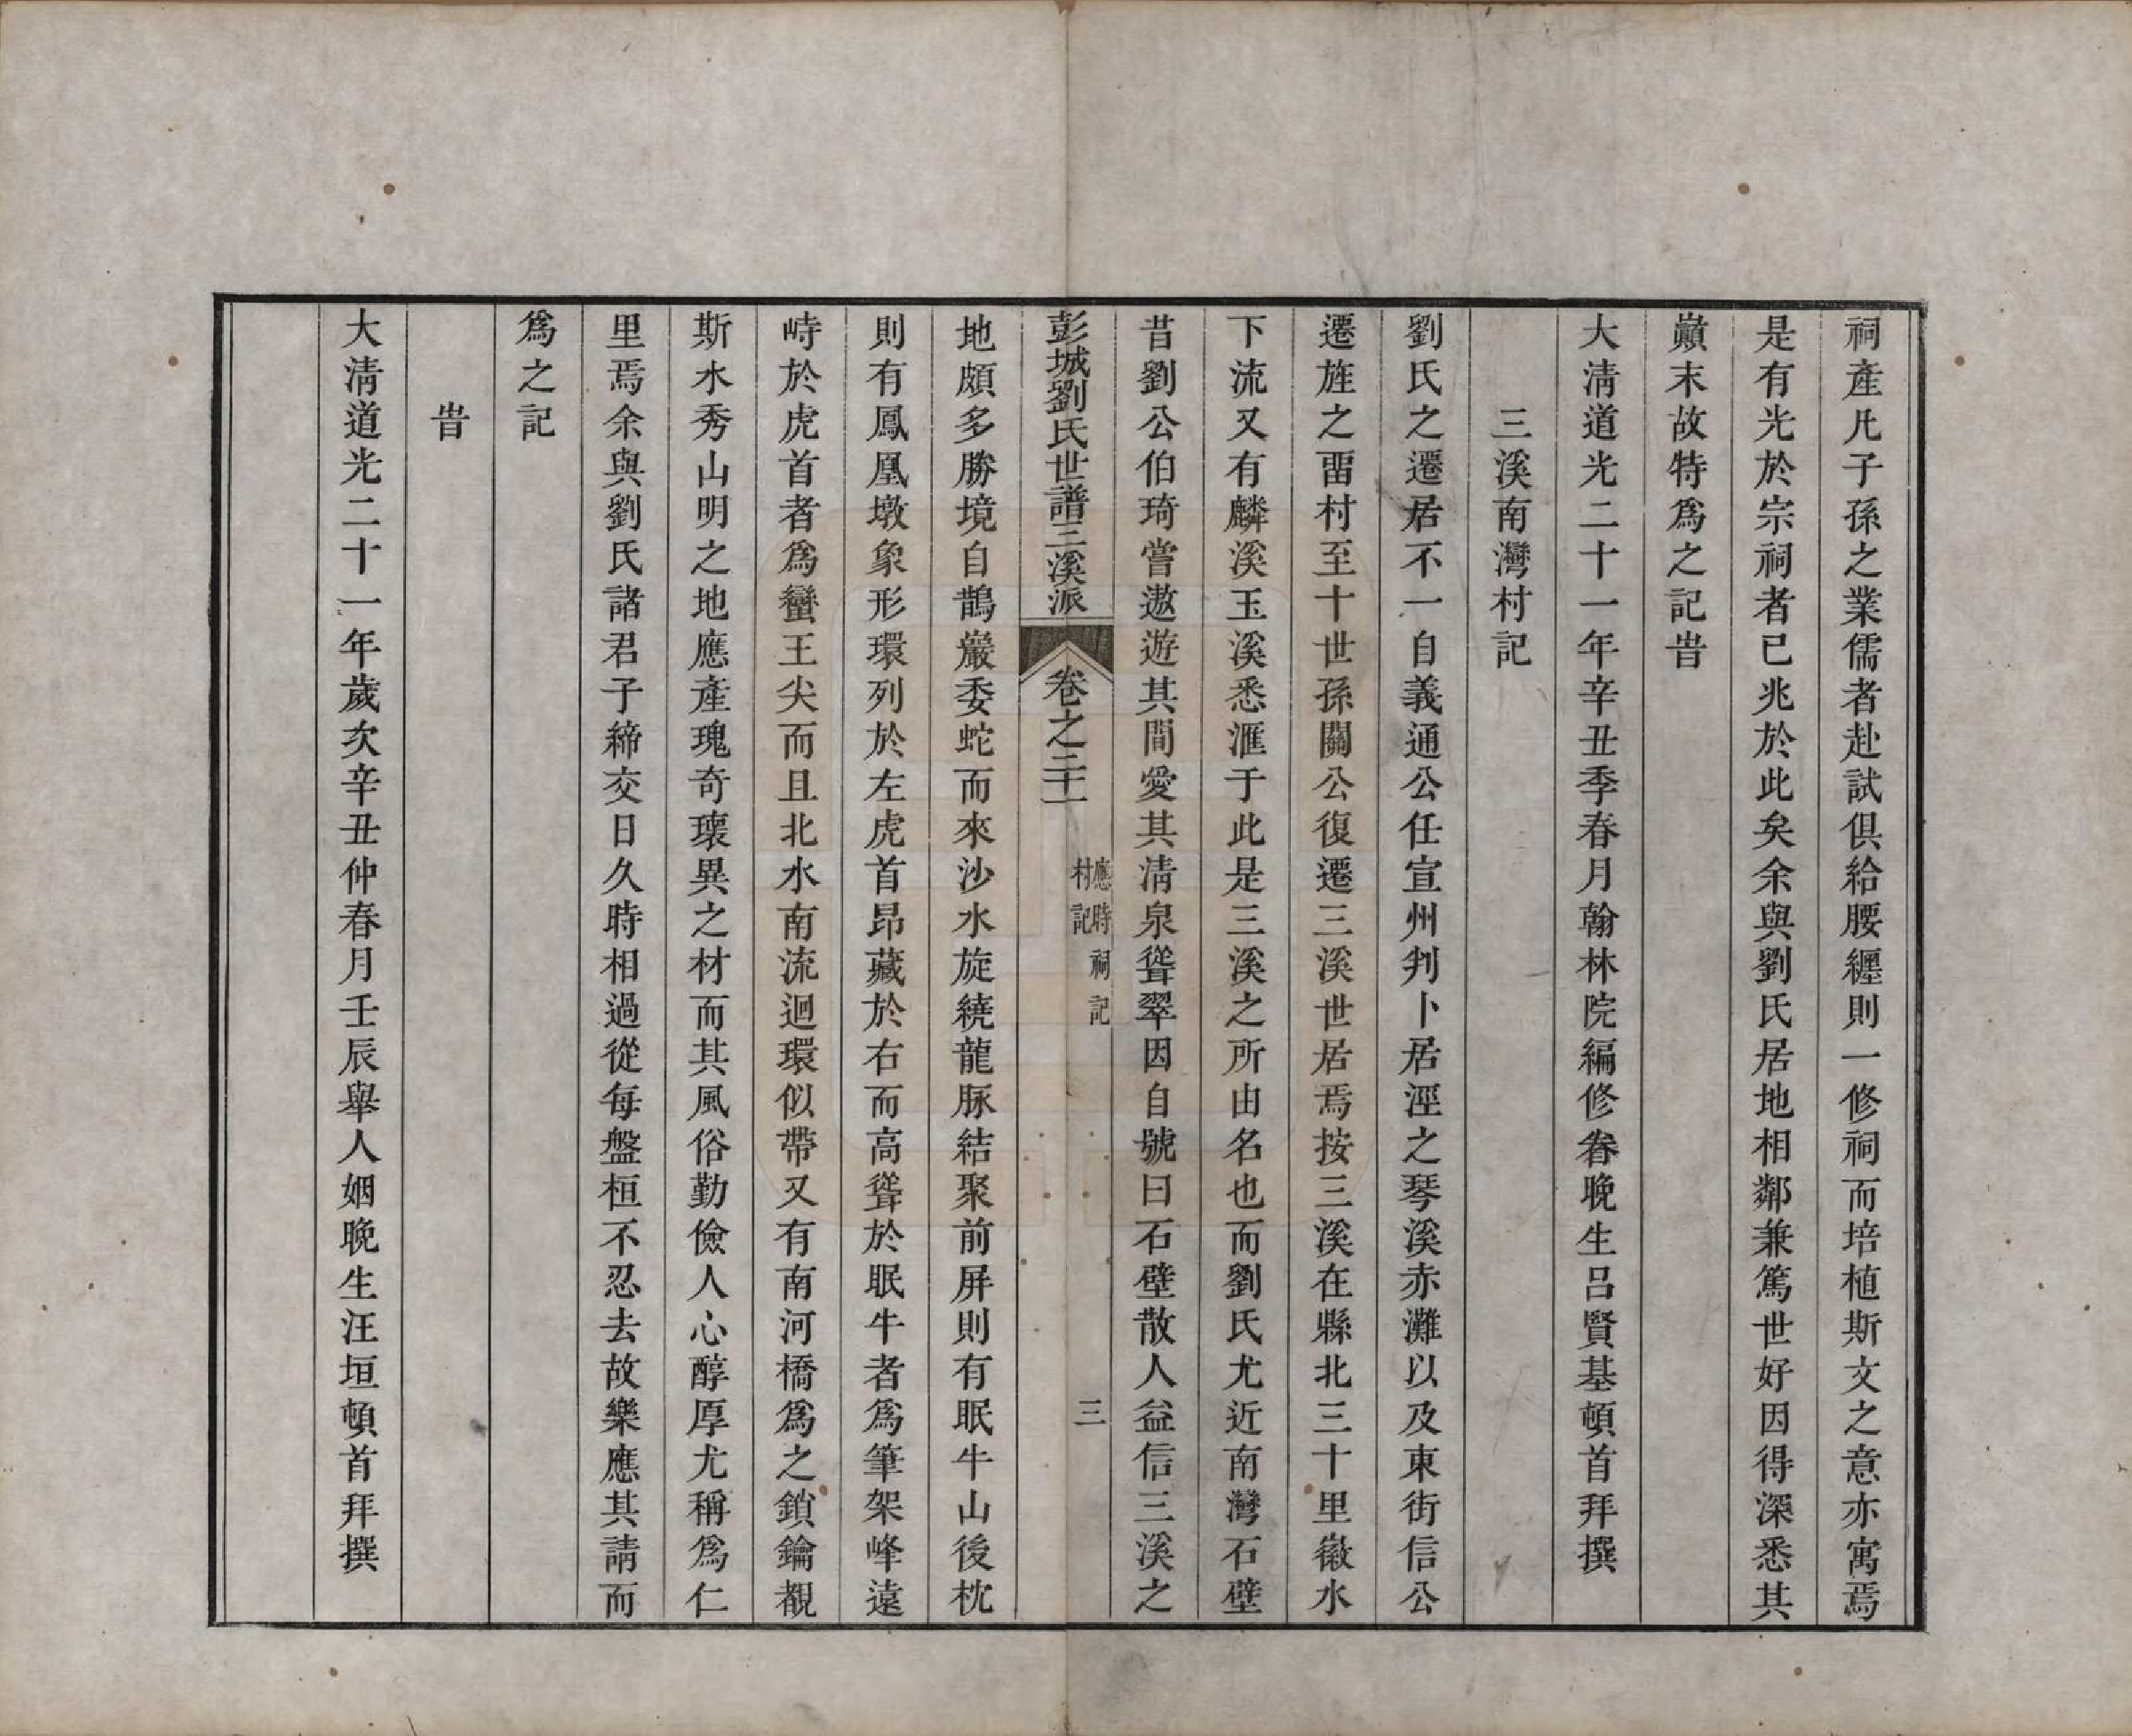 祠產凡子孫之業儒者赴試俱給腰纏則一修祠而培植斯文之意亦寓焉
是有光於宗祠者已兆於此矣余與劉氏居地相鄰兼篤世好因得深悉其
巔末故特爲之記旹
大淸道光二十一年辛丑季春月翰林院編修眷晚生呂賢基頓首拜撰
三溪南灣村記
劉氏之遷居不一自義通公任宣州判卜居涇之琴溪赤灘以及東街信公
遷旌之畱村至十世孫關公復遷三溪世居焉按三溪在縣北三十里徽水
下流又有麟溪玉溪悉滙于此是三溪之所由名也而劉氏尤近南灣石壁
昔劉公伯琦嘗遨遊其間愛其淸泉聳翠因自號曰石壁散人益信三溪之
彭城劉氏世譜三溪派 卷之二十一 應時祠記 村記 三
地頗多勝境自鵲巖委蛇而來沙水旋繞龍脈結聚前屏則有眠牛山後枕
則有鳳凰墩象形環列於左虎首昂藏於右而高聳於眠牛者爲筆架峰遠
峙於虎首者爲蠻王尖而且北水南流迴環似帶又有南河橋爲之鎖鑰觀
斯水秀山明之地應產瑰奇瓌異之材而其風俗勤儉人心醇厚尤稱爲仁
里焉余與劉氏諸君子締交日久時相過從每盤桓不忍去故樂應其請而
爲之記
旹
大淸道光二十一年歲次辛丑仲春月壬辰舉人姻晚生汪垣頓首拜撰